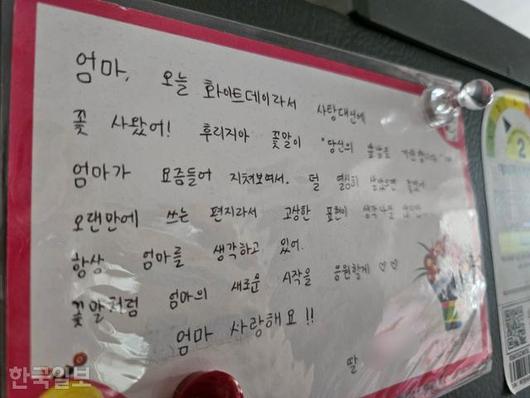 엄마, 오늘 화이트데이라서 사탕대신에
꽃 사왔어! 후리지아 꽃말이 "당신의
엄마가 요즘들어 지쳐보여서. 덜 열심히
오랜만에 쓰는 편지라서 고상한 표현이 생각
항상 엄마를 생각하고 있어.
꽃말처럼 엄마의 새로운 시작을 응원할게 ♡♡
엄마 사랑해요!!
딸
한국일보
2